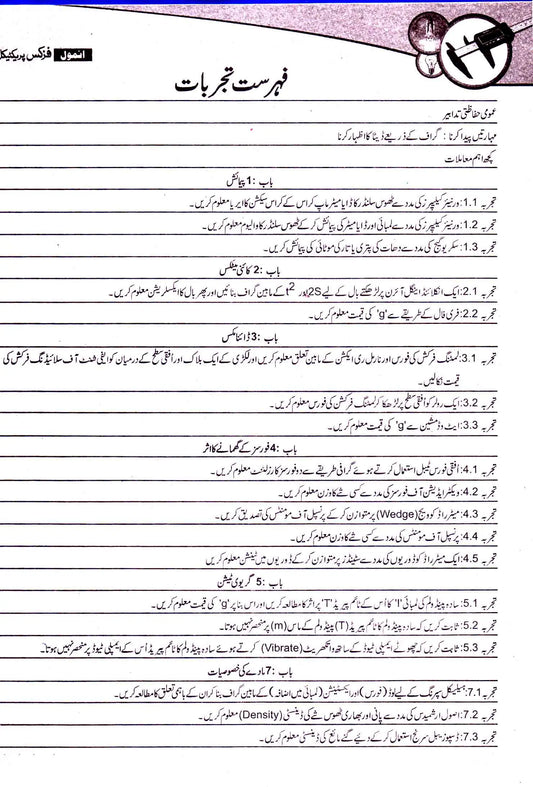 انمول فزکس پریکٹیکل
فہرست تجربات
عمومی حفاظتی تدابیر
مہارتیں پیدا کرنا : گراف کے ذریعے ڈیٹا کا اظہار کرنا
کچھ اہم معاملات
باب :1 پیمائش
تجربہ 1.1: ورنیئر کیلیپرز کی مدد سے ٹھوس سلنڈر کا ڈایا میٹر ماپ کر اس کے کراس سیکشن کا ایریا معلوم کریں۔
تجربہ 1.2: ورنیئر کیلیپرز کی مدد سے لمبائی اور ڈایا میٹر کی پیمائش کر کے ٹھوس سلنڈر کا والیوم معلوم کریں۔
تجربہ 1.3: سکریو گیج کی مدد سے دھات کی پتری یا تار کی موٹائی کی پیمائش کریں۔
باب :2 کائنی میٹکس
تجربہ 2.1: ایک انکلائنڈ اینگل آئرن پر لڑھکتے بال کے لیے 2S اور t² کے مابین گراف بنائیں اور پھر بال کا ایکسلریشن معلوم کریں۔
تجربہ 2.2: فری فال کے طریقے سے 'g' کی قیمت معلوم کریں۔
باب :3 ڈائنامکس
تجربہ 3.1: لمٹنگ فرکشن کی فورس اور نارمل ری ایکشن کے مابین تعلق معلوم کریں اور لکڑی کے ایک بلاک اور اُفقی سطح کے درمیان کوایفی شنٹ آف سلائیڈنگ فرکشن کی
قیمت نکالیں۔
تجربہ 3.2: ایک رولر کو اُفقی سطح پر لڑھکا کر لمٹنگ فرکشن کی فورس معلوم کریں۔
تجربہ 3.3: ایٹ وڈ مشین سے 'g' کی قیمت معلوم کریں۔
باب :4 فورسز کے گھمانے کا اثر
تجربہ 4.1: اُفقی فورس ٹیبل استعمال کرتے ہوئے گرافی طریقے سے دو فورسز کا رزلٹنٹ معلوم کریں۔
تجربہ 4.2: ویکٹر ایڈیشن آف فورسز کی مدد سے کسی شے کا وزن معلوم کریں۔
تجربہ 4.3: میٹر راڈ کو ویج (Wedge) پر متوازن کر کے پرنسپل آف مومنٹس کی تصدیق کریں۔
تجربہ 4.4: پرنسپل آف مومنٹس کی مدد سے کسی شے کا وزن معلوم کریں۔
تجربہ 4.5: ایک میٹر راڈ کو ڈوریوں کی مدد سے سٹینڈز پر متوازن کر کے ڈوریوں میں ٹینشن معلوم کریں
باب :5 گریوی ٹیشن
تجربہ 5.1: سادہ پینڈولم کی لمبائی 'l' کا اُس کے ٹائم پیریڈ 'T' پر اثر کا مطالعہ کریں اور اس بنا پر 'g' کی قیمت معلوم کریں۔
تجربہ 5.2: ثابت کریں کہ سادہ پینڈولم کا ٹائم پیریڈ (T) پینڈولم کے ماس (m) پر منحصر نہیں ہوتا۔
تجربہ 5.3: ثابت کریں کہ چھوٹے ایمپلی ٹیوڈ کے ساتھ وائبریٹ (Vibrate) کرتے ہوئے سادہ پینڈولم کا ٹائم پیریڈ اُس کے ایمپلی ٹیوڈ پر منحصر نہیں ہوتا۔
باب :7 مادے کی خصوصیات
تجربہ 7.1: ہیلیکل سپرنگ کے لیے لوڈ (فورس) اور ایکسٹینشن (لمبائی میں اضافہ) کے مابین گراف بنا کر ان کے باہمی تعلق کا مطالعہ کریں۔
تجربہ 7.2: اصول ارشمیدس کی مدد سے پانی اور بھاری ٹھوس شے کی ڈینسٹی (Density) معلوم کریں۔
تجربہ 7.3: ڈسپوزیبل سرنج استعمال کر کے دیے گئے مائع کی ڈینسٹی معلوم کریں۔